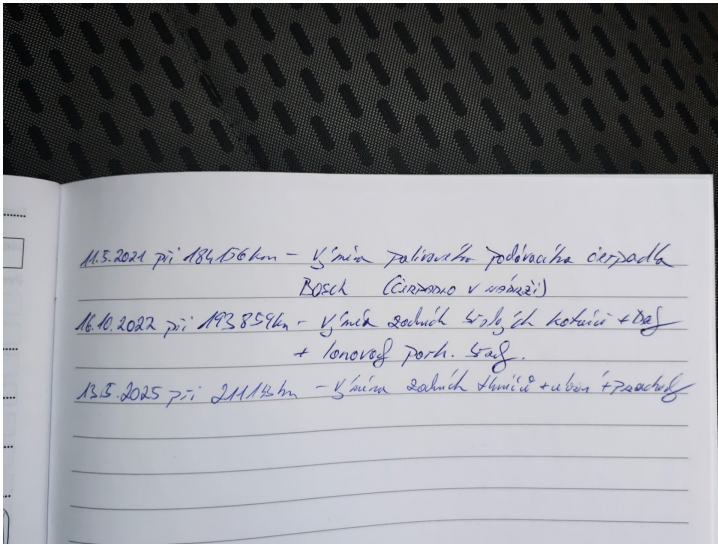 11.5.2021 při 184156km – Výměna palivového podávacího čerpadla
BOSCH (ČERPADLO V NÁDRŽI)
16.10.2022 při 193854km – Výměna zadních brzdových kotoučů +
+ lanovody park. brzdy.
13.5.2025 při km – Výměna zadních tlumičů + uložení + prachovky